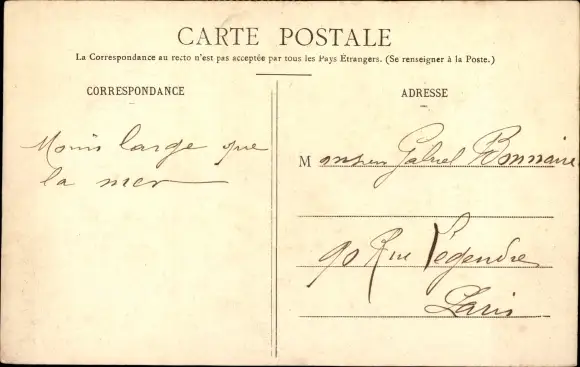 CARTE POSTALE
La Correspondance au recto n'est pas acceptée par tous les Pays Etrangers. (Se renseigner à la Poste.)
CORRESPONDANCE
ADRESSE
Moins large que
la mer
Monsieur Gabriel Bonnaire
90 Rue Legendre
Paris